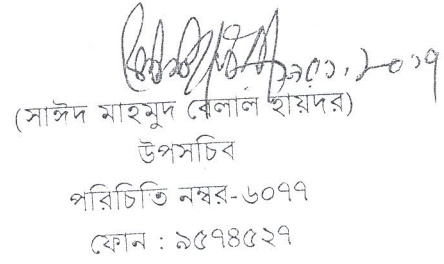 (সাঈদ মাহমুদ বেলাল হায়দর)
উপসচিব
পরিচিতি নম্বর-৬০৭৭
ফোন : ৯৫৭৪৫২৭